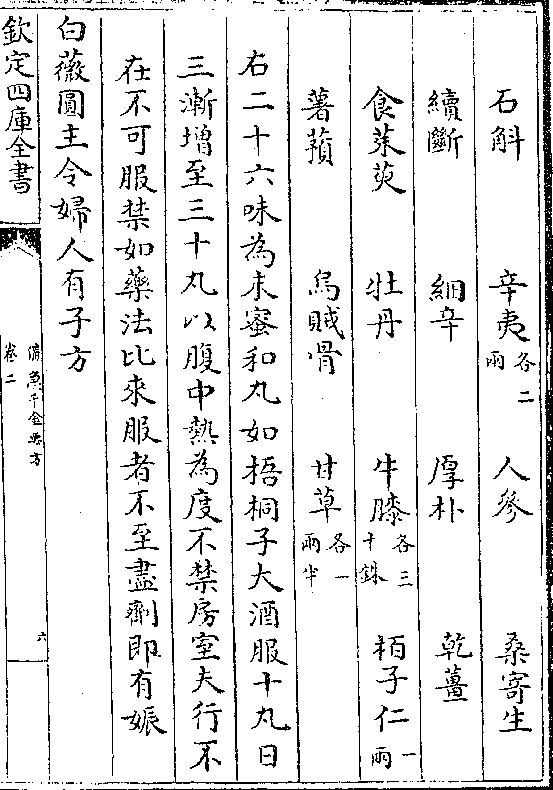 石斛 辛夷各二兩 人參 桑寄生
續斷 細辛 厚朴 乾薑
食茱萸 牡丹 牛膝各三十銖 栢子仁一兩
薯蕷 烏賊骨 甘草各一兩半
右二十六味為末蜜和丸如梧桐子大酒服十丸日
三漸增至三十丸以腹中熱為度不禁房室夫行不
在不可服禁如藥法比來服者不至盡劑即有娠
白薇圓主令婦人有子方
欽定四庫全書
備急千金要方
卷二
六